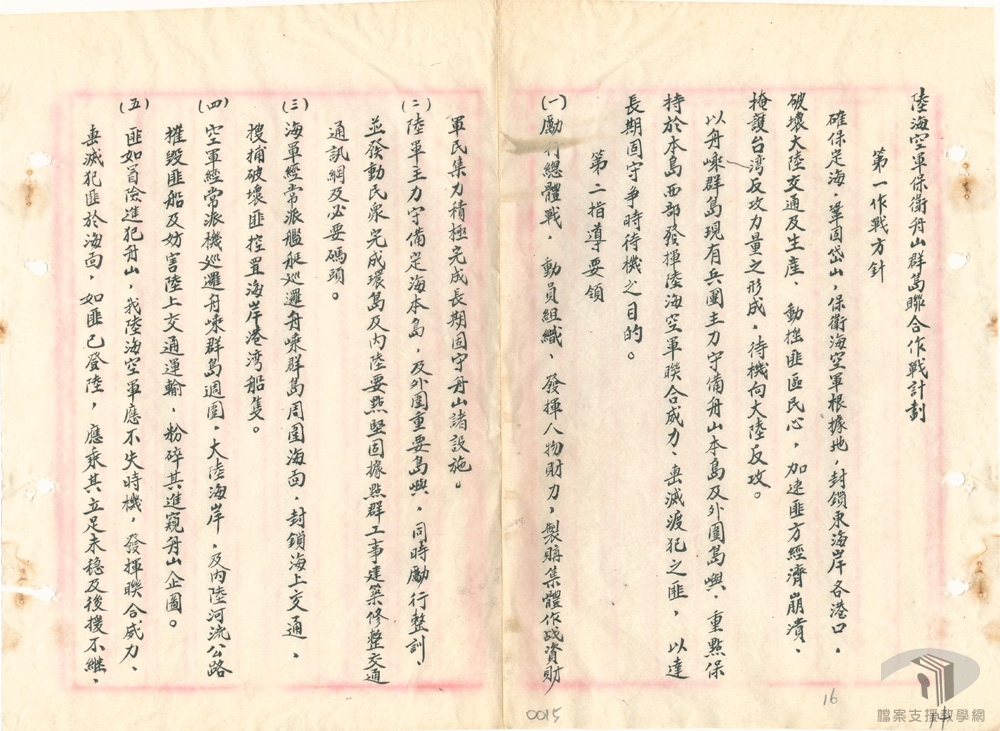 陸海空軍保衛舟山群島聯合作戰計劃
第一作戰方針
確保定海，鞏固岱山，保衛海空軍根據地，封鎖東海岸各港口，
破壞大陸交通及生產、動搖匪區民心，加速匪方經濟崩潰、
掩護台湾反攻力量之形成，待機向大陸反攻。
以舟嵊群島現有兵團主力守備舟山本島及外圍島嶼，重點保
持於本島西部發揮陸海空軍聯合威力、殲滅渡犯之匪，以達
長期固守爭時待機之目的。
第二指導要領
(一)勵行總體戰，動員組織、發揮人物財力，製賬集體作战資財
軍民集力積極完成長期固守舟山諸設施。
(二)陸軍主力守備定海本島，及外圍重要島嶼，同時勵行整訓、
並發動民衆完成環島及內陸要點堅固據點群工事建築修整交通
通訊網及必要碼頭。
(三)海軍經常派艦艇巡邏舟嵊群島周圍海面，封鎖海上交通、
搜捕破壞匪控置海岸港湾船隻。
(四)空軍經常派機巡邏舟嵊群島週圍，大陸海岸，及內陸河流公路
摧毀匪船及妨害陸上交通運輸，粉碎其進窺舟山企圖。
(五)匪如冒險進犯舟山，我陸海空軍應不失時機，發揮聯合威力、
殲滅犯匪於海面，如匪已登陸，應乘其立足未穩及後援不継、
0015
16
檔案支援教學網